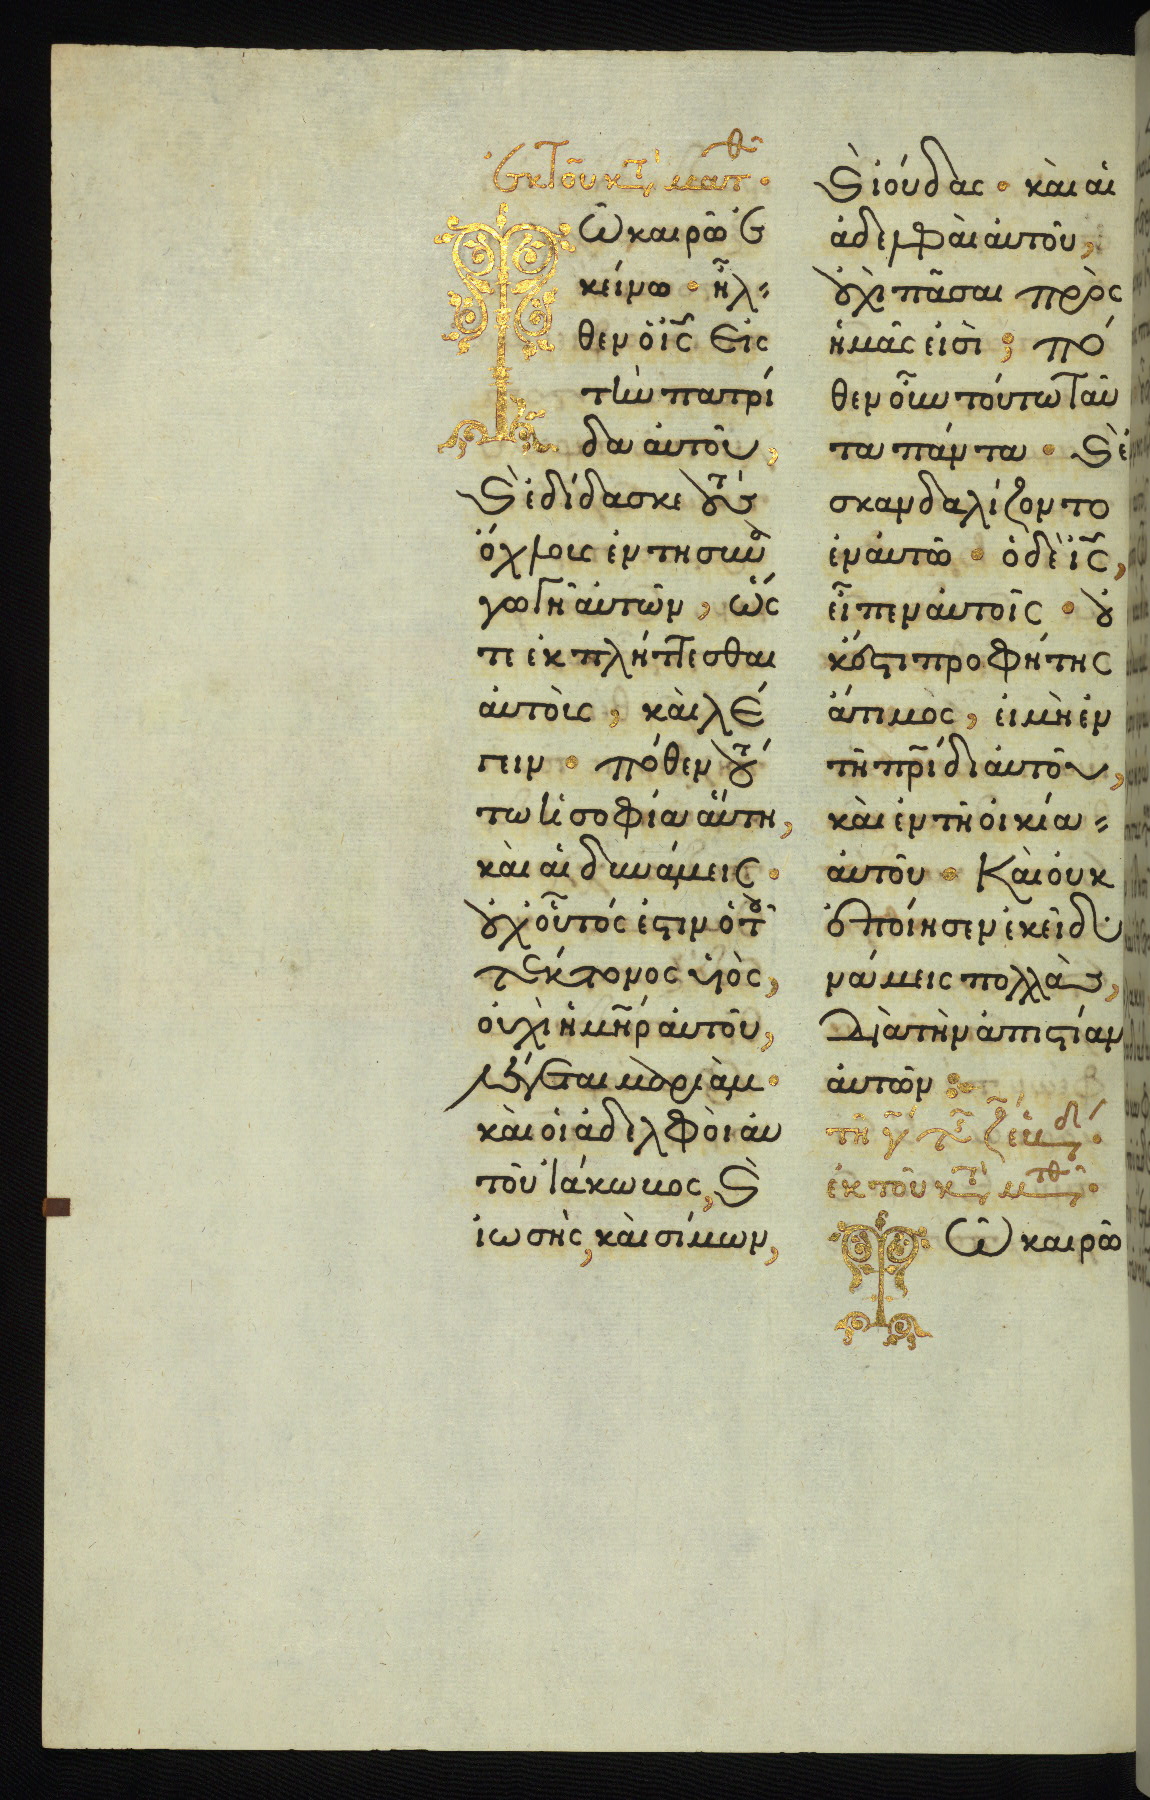 Ἐκ τοῦ κτ ματθ ·
Τῶ καιρῶ ἐ
κείνω · ἦλ=
θεν ὁ ἰς εἰς
τὴν πατρί
δα ἁυτοῦ,
ϗ̀ ἐδίδασκε τοὺς
ὄχλους ἐν τη συνα
γωγῆ ἀυτῶν, ὥς
τε ἐκπλήττεσθαι
ἀυτὸυς, κὰι λέ
γειν · πόθεν τού
τω ἡ σοφία ἅυτη,
κὰι αἱ δυνάμεις ·
οὐχ οὗτός ἐστιν ὁ τοῦ
τέκτονος υἱὸς,
ὀυχὶ ἡ μηρ ἀυτοῦ,
λέγεται μαριὰμ ·
κὰι ὁι ἀδελφὸι ἀυ
τοῦ ἰάκωβος, ϗ̀
ἰωσῆς, κὰι σίμων,
ϗ̀ ἰούδας · κὰι αἱ
ἀδελφὰι ἀυτοῦ,
οὐχὶ πᾶσαι πρὸς
ἡμᾶς εἰσὶ ; πό
θεν οὖν τούτω ταῦ
τα πάντα · ϗ̀ ἐ
σκανδαλίζοντο
ἐν ἀυτῶ · ὁ δὲ ἰς,
εἶπεν ἀυτοῖς · οὐ
κ ἔστι προφήτης
ἄτιμὸς, ἐι μὴ ἐν
τῆ πρίδι ἀυτοῦ,
κὰι ἐν τῆ οἰκία=
ἀυτοῦ · Κὰι ὀυκ
ἐποίησεν ἐκεῖ δυ
νάμεις πολλὰς,
Διὰ τὴν ἀπιστίαν
ἀυτῶν :
τῆ γ τῆς ζ ἑβδ ·
ἐκ τοῦ κτ μτθ ·
Τῶ καιρῶ